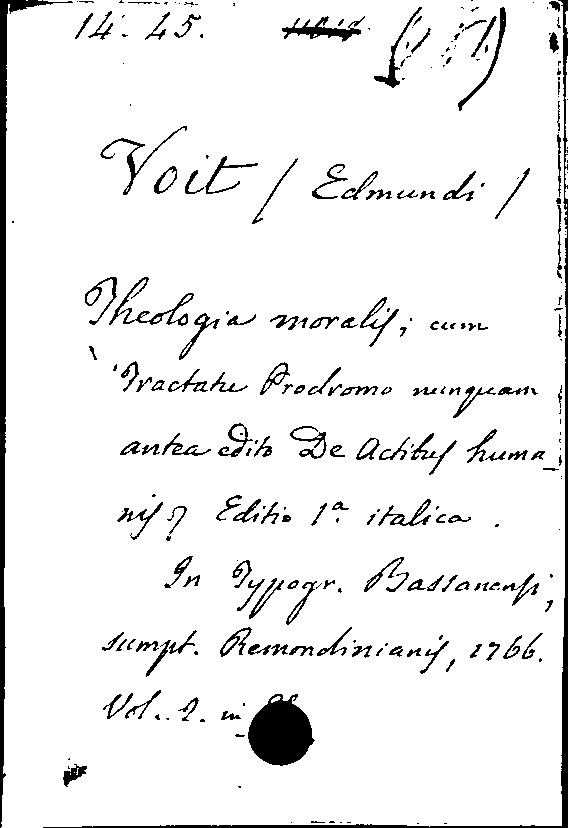 14. 45.
Voit / Edmundi /
Theologia moralis; cum
Tractatu Prodromo nunquam
antea edito De Actibus huma_
nis Editio 1ª italica.
In Typogr. Bassanensi,
sumpt. Remondinianis, 1766.
Vol. 2. in